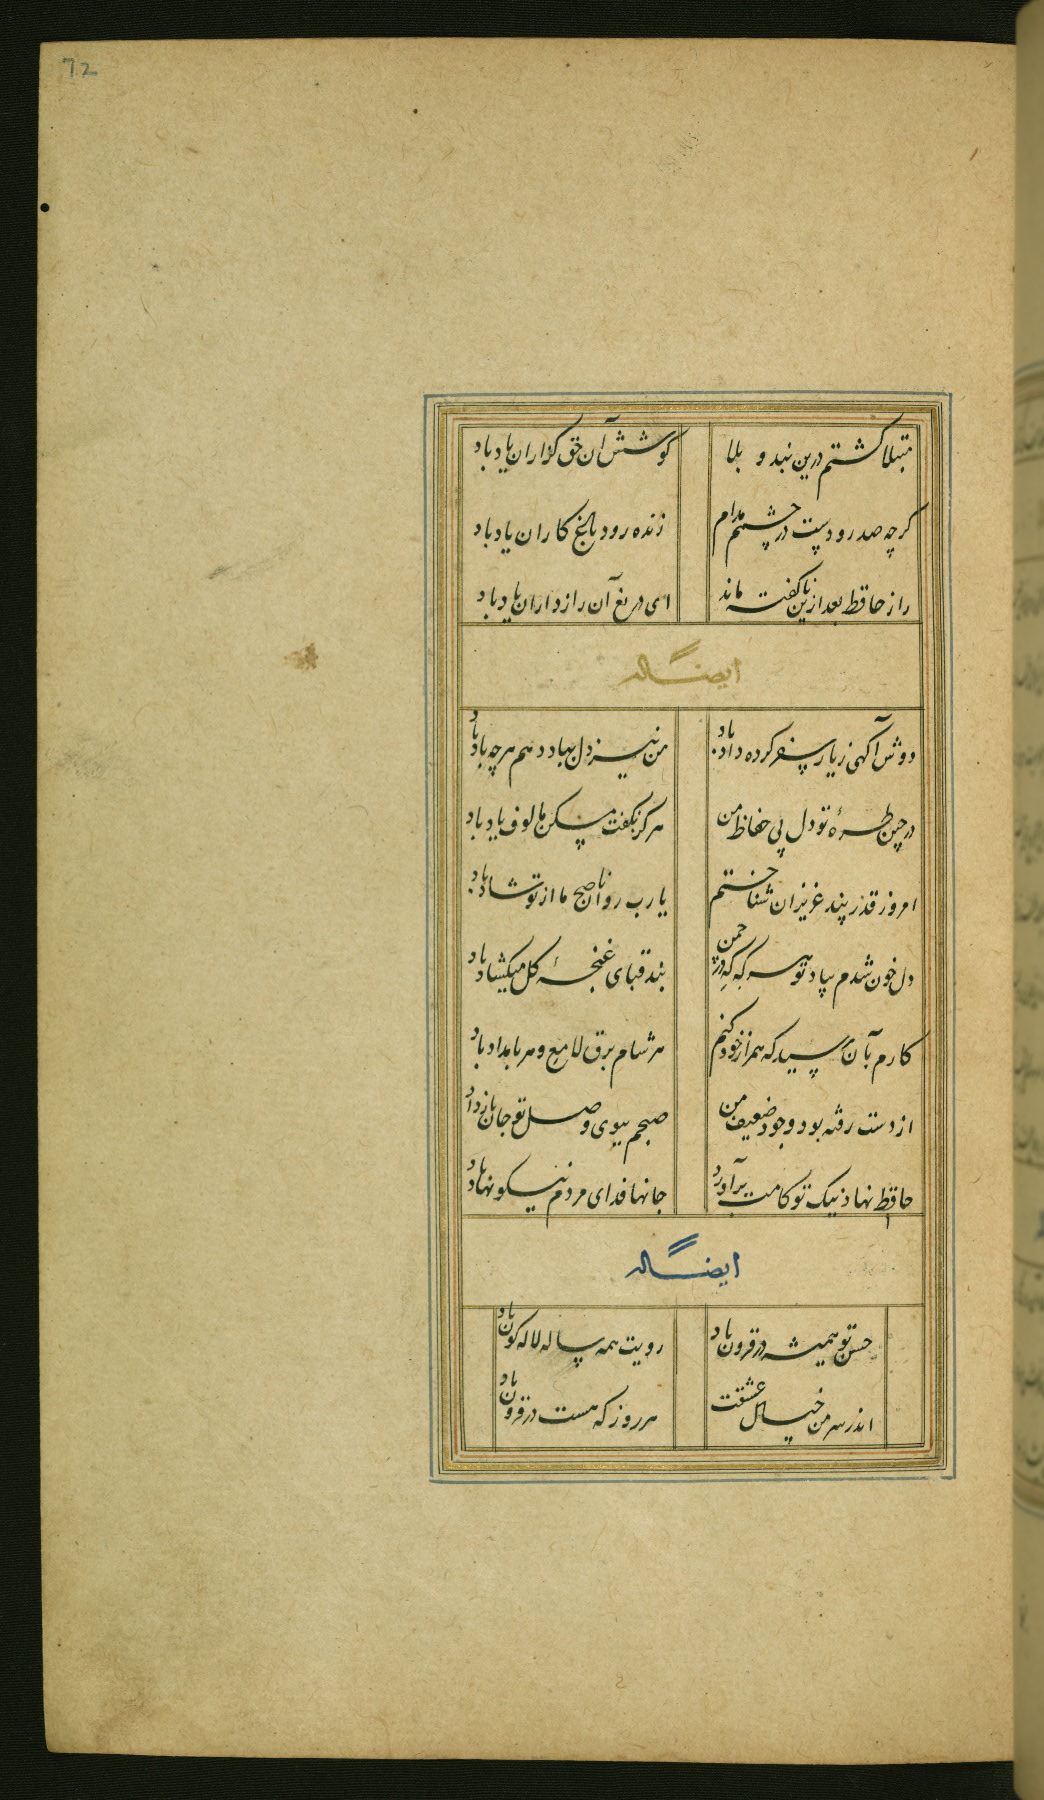 72
مبتلا گشتم درین بند و بلا کوشش آن حق گزاران یاد باد
گرچه صد رودست در چشمم مدام زنده رود باغ کاران یاد باد
راز حافظ بعد ازین ناگفته ماند ای دریغ آن رازداران یاد باد
ایضاً له
دوش آگهی ز یار سفر کرده داد باد من نیز دل بباد دهم هرچه باد باد
در چین طره تو دل بی حفاظ من هرگز نگفت مسکن مالوف یاد باد
امروز قدر پند عزیزان شناختم یا رب روان ناصح ما از تو شاد باد
دل خون شدم بیاد تو هر گه که در چمن بند قبای غنچهٔ گل میگشاد باد
کارم بآن رسید که همراز خود کنم هر شام برق لامع و هر بامداد باد
از دست رفته بود وجود ضعیف من صبحم ببوی وصل تو جان باز داد باد
حافظ نهاد نیک تو کامت برآورد جانها فدای مردم نیکو نهاد باد
ایضاً له
حسن تو همیشه در فزون باد رویت همه ساله لاله گون باد
اندر سر من خیال عشقت هر روز که هست در فزون باد